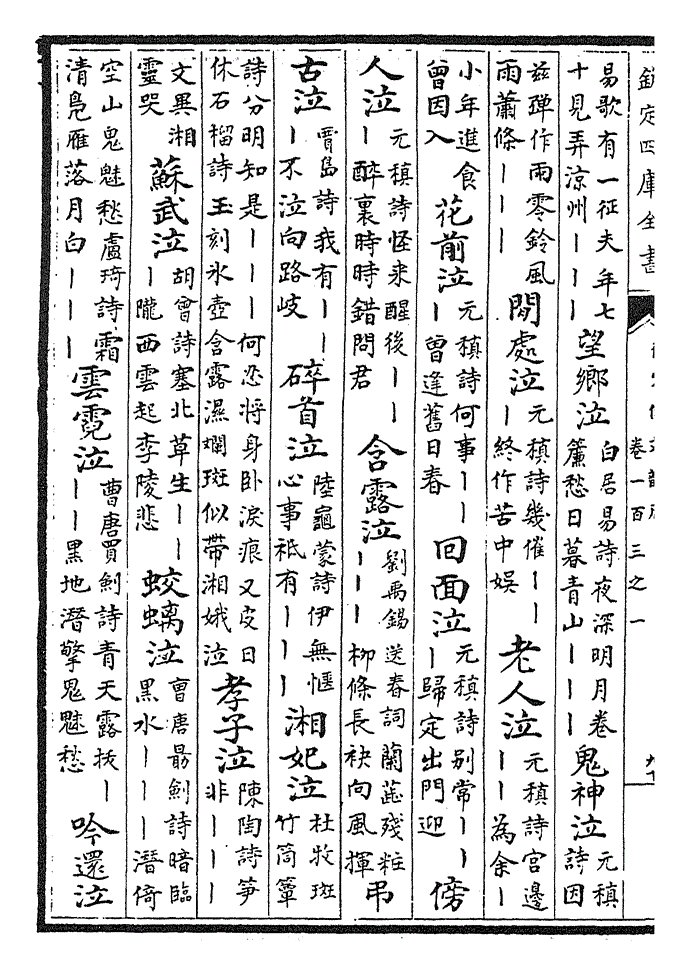 欽定四庫全書
卷一百三之一
易歌有一征夫年七十見弄涼州｜｜｜望鄉泣白居易詩夜深明月卷簾愁日暮青山｜｜｜鬼神泣元稹詩因
茲彈作雨零鈴風雨蕭條｜｜｜閒處泣元稹詩幾催｜｜｜終作苦中娛老人泣元稹詩宮邊｜｜為余｜
小年進食曾因入花前泣元稹詩何事｜｜｜曾逢舊日春回面泣元稹詩別常｜｜｜歸定出門迎傍
人泣元稹詩怪來醒後｜｜｜醉裏時時錯問君含露泣劉禹錫送春詞蘭蘂殘粧｜｜｜柳條長袂向風揮弔
古泣賈島詩我有｜｜｜不泣向路岐碎首泣陸龜蒙詩伊無愜心事祇有｜｜｜湘妃泣杜牧斑竹筒簟
詩分明知是｜｜｜何忍將身卧淚痕又皮日休石榴詩玉刻氷壺含露濕斕斑似帶湘娥泣孝子泣陳陶詩笋非｜｜｜
文異湘靈哭蘇武泣胡曾詩塞北草生｜｜｜隴西雲起李陵悲蛟螭泣曹唐朂劍詩暗臨黑水｜｜｜潛倚
空山鬼魅愁盧琦詩霜清鳬雁落月白｜｜｜雲霓泣曹唐買劍詩青天露拔｜｜｜黑地潛擎鬼魅愁吟還泣